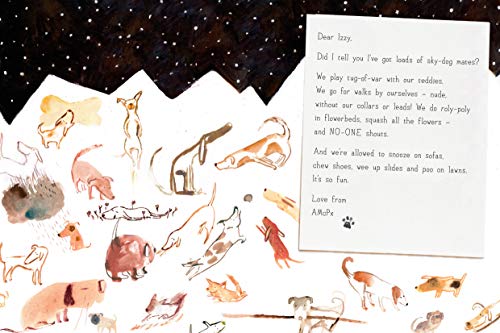 Dear Izzy,
Did I tell you I've got loads of sky-dog mates?
We play tug-of-war with our teddies.
We go for walks by ourselves – nude,
without our collars or leads! We do roly-poly
in flowerbeds, squash all the flowers –
and NO-ONE shouts.
And we're allowed to snooze on sofas,
chew shoes, wee up slides and poo on lawns.
It's so fun.
Love from
AMoPx